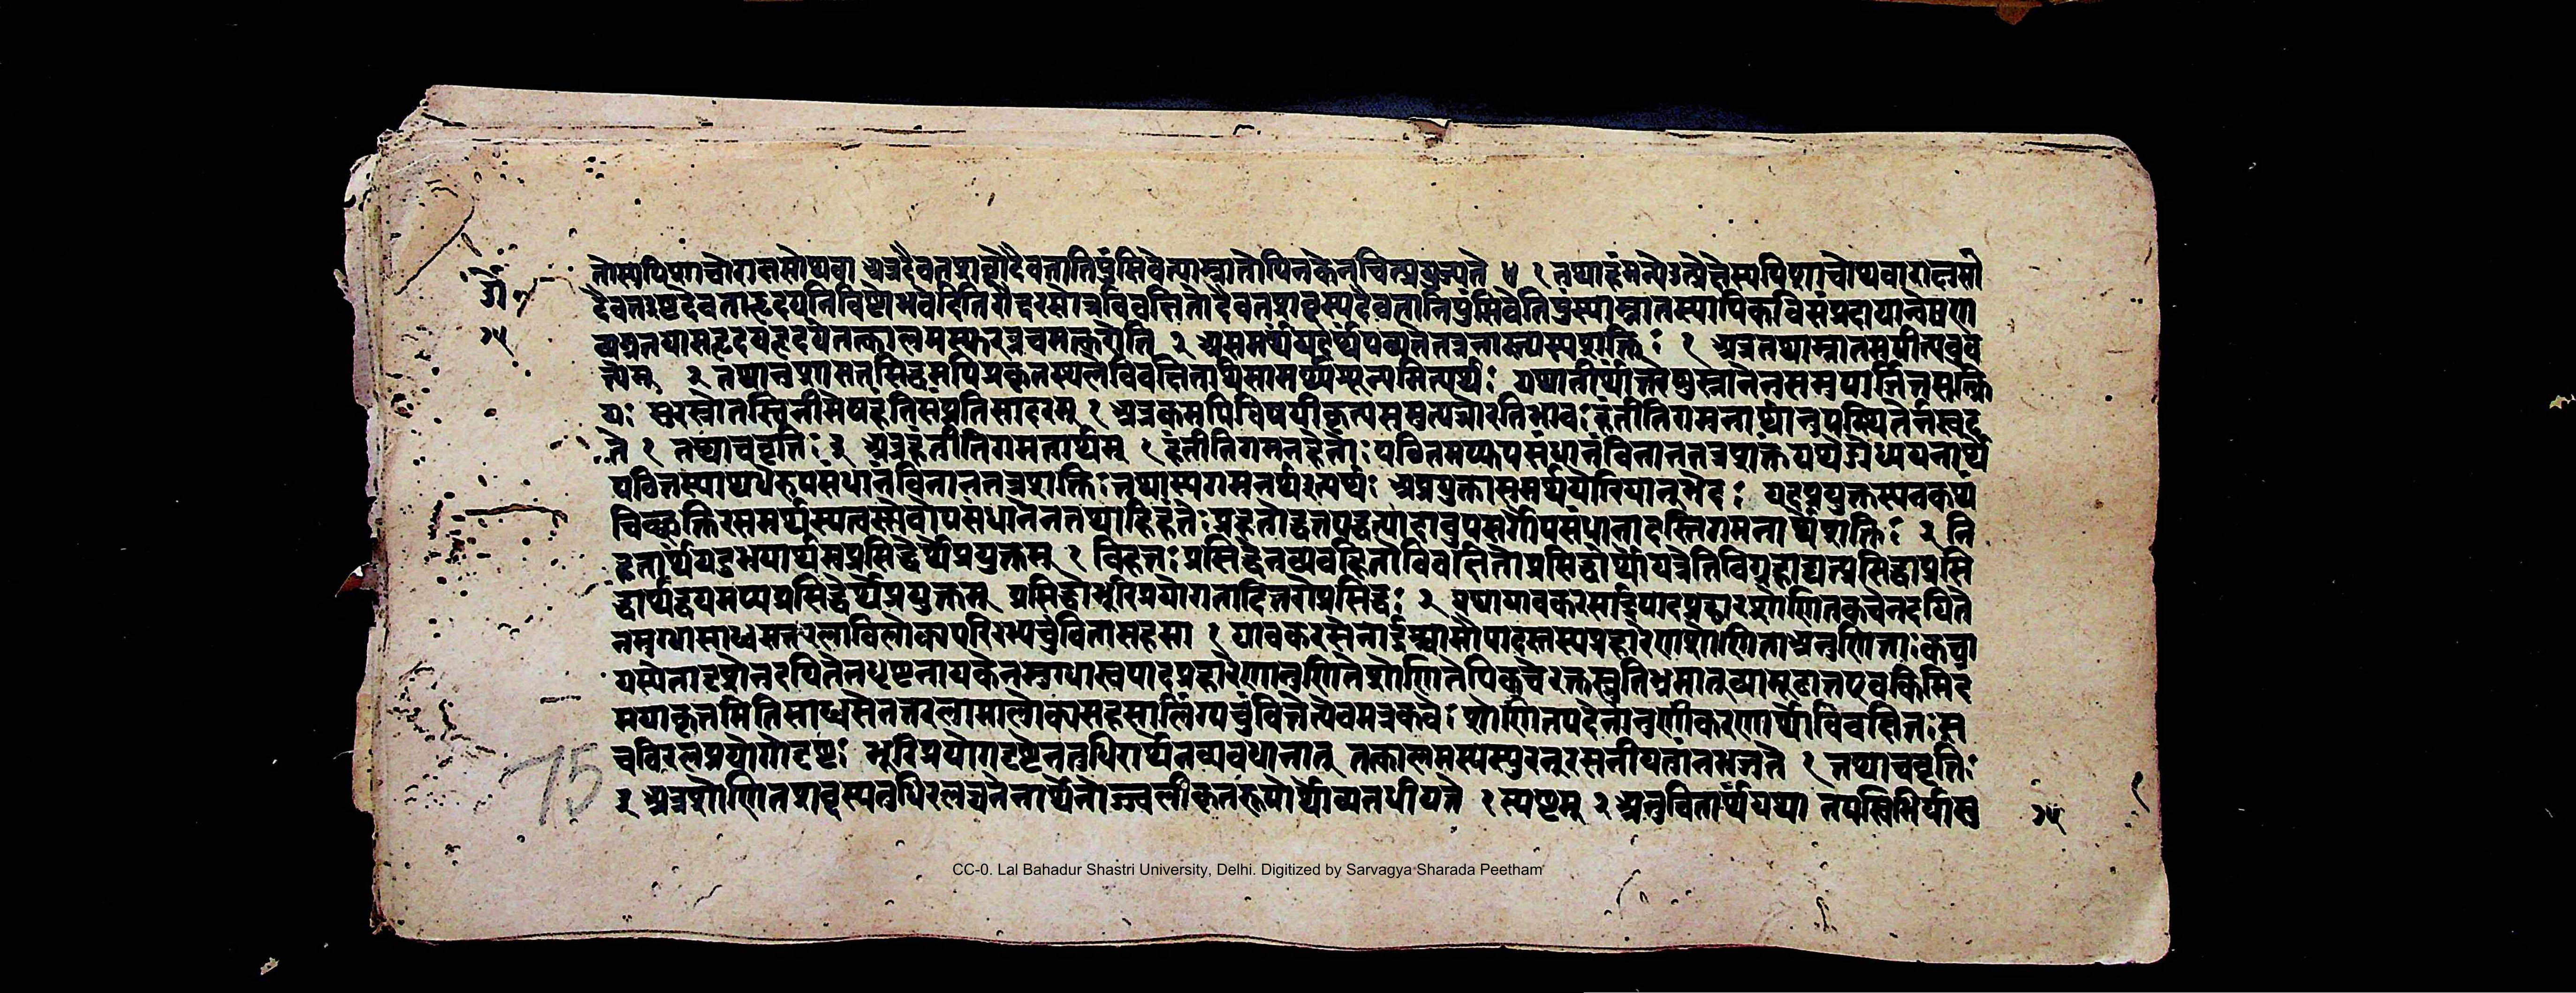 तोस्यपिशाचोराक्षसोथवा अत्रदैवतशब्दोदैवतानिपुंसिवेत्याम्नातोपिनकेनचित्प्रयुज्यते ४ १ तथाहंमन्ये
दैवतइष्टदेवताहृदयनिविष्टोभवदितिरौद्ररसोत्रविवक्षितोदैवतशब्दस्यदैवतानिपुंसिवेतिपुंस्याम्नातस्यापिकविसंप्रदायान्वेषण
व्यग्रतयासहृदयहृदयेतत्कालमस्फुरन्नचमत्करोति २ असमर्थंयदर्थंपठ्यतेतत्रनास्त्यस्यशक्तिः १ अत्रतथाम्नातमपीत्यनुव
र्त्यम् २ तथानुशासनसिद्धमपिप्रकृतस्थलेविवक्षितार्थसामर्थ्यशून्यमित्यर्थः यथातीर्थान्तरेषुस्नानेनसमुपार्जितसत्क्रि
यः सुरस्रोतस्विनीमेषहंतिसंप्रतिसादरम् १ अत्रकमपिविषयीकृत्यसमुत्पन्नोरतिभावः हंतीतिगमनार्थानुपस्थितेर्नस्वद
ते १ तथाचवृत्तिः ३ अत्रहंतीतिगमनार्थम् १ हंतीतिगमनहेतोः पठितमप्युपसंधानंविनानतत्रशक्तं
पठितस्याप्यधेरुपसंधानंविनानतत्रशक्तिः तथास्यगमनेर्थइत्यर्थः अप्रयुक्तासमर्थयोरियान्भेदः यदप्रयुक्तस्यनकथं
चिच्छक्तिरसमर्थस्यत्वस्त्येवोपसंधानेनतथाहिहंतेः उपसर्गोपसंधानादस्तिगमनार्थेशक्तिः २ नि
हतार्थंयदुभयार्थमप्रसिद्धेर्थेप्रयुक्तम् १ विहतः प्रसिद्धेनव्यवहितोविवक्षितोप्रसिद्धोर्थोयत्रेतिविग्रहाद्यत्प्रसिद्धाप्रसि
द्धार्थद्वयमप्यप्रसिद्धेर्थेप्रयुक्तम् प्रसिद्धोभूरिप्रयोगतोदितरोप्रसिद्धः २ यथायावकरसार्द्रपादप्रहारशोणितकचेनदयिते
नमुग्धासाध्वसतरलाविलोक्यपरिरभ्यचुंबितासहसा १ यावकरसेनार्द्रश्चासौपादस्तस्यप्रहारेणशोणिताअनुशोणिताः कचा
यस्येतादृशेनदयितेनधृष्टनायकेनमुग्धास्वपादप्रहारेणानुशोणितेशोणितेपिकचेरक्तस्रुतिभ्रमात् किमिदं
मयाकृतमितिसाध्वसेनतरलामालोक्यसहसालिंग्यचुंबितेत्येवमत्रकवेः शोणितपदेनानुशोणीकरणार्थोविवक्षितः स
चविरलप्रयोगोदृष्टः भूरिप्रयोगदृष्टेनतुधिरार्थेनव्यवधानात् तत्कालमस्यस्फुरन्रसनीयतांनभजते १ तथाचवृत्तिः
२ अत्रशोणितशब्दस्यरुधिरलक्षणेनार्थेनोज्ज्वलीकृतरूपोर्थोव्यवधीयते १ स्पष्टम् २ अनुचितार्थंयथा तपस्विभिर्यासु
७५
75
CC-0. Lal Bahadur Shastri University, Delhi. Digitized by Sarvagya Sharada Peetham